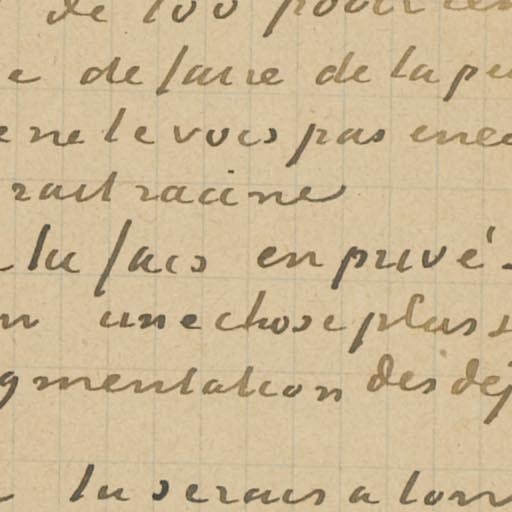 de 100 pour cen
de faire de la pu
ne le vois pas enco
rait racine
tu fais en privé -
une chose plus s
gmentation des déj
tu serais a lon